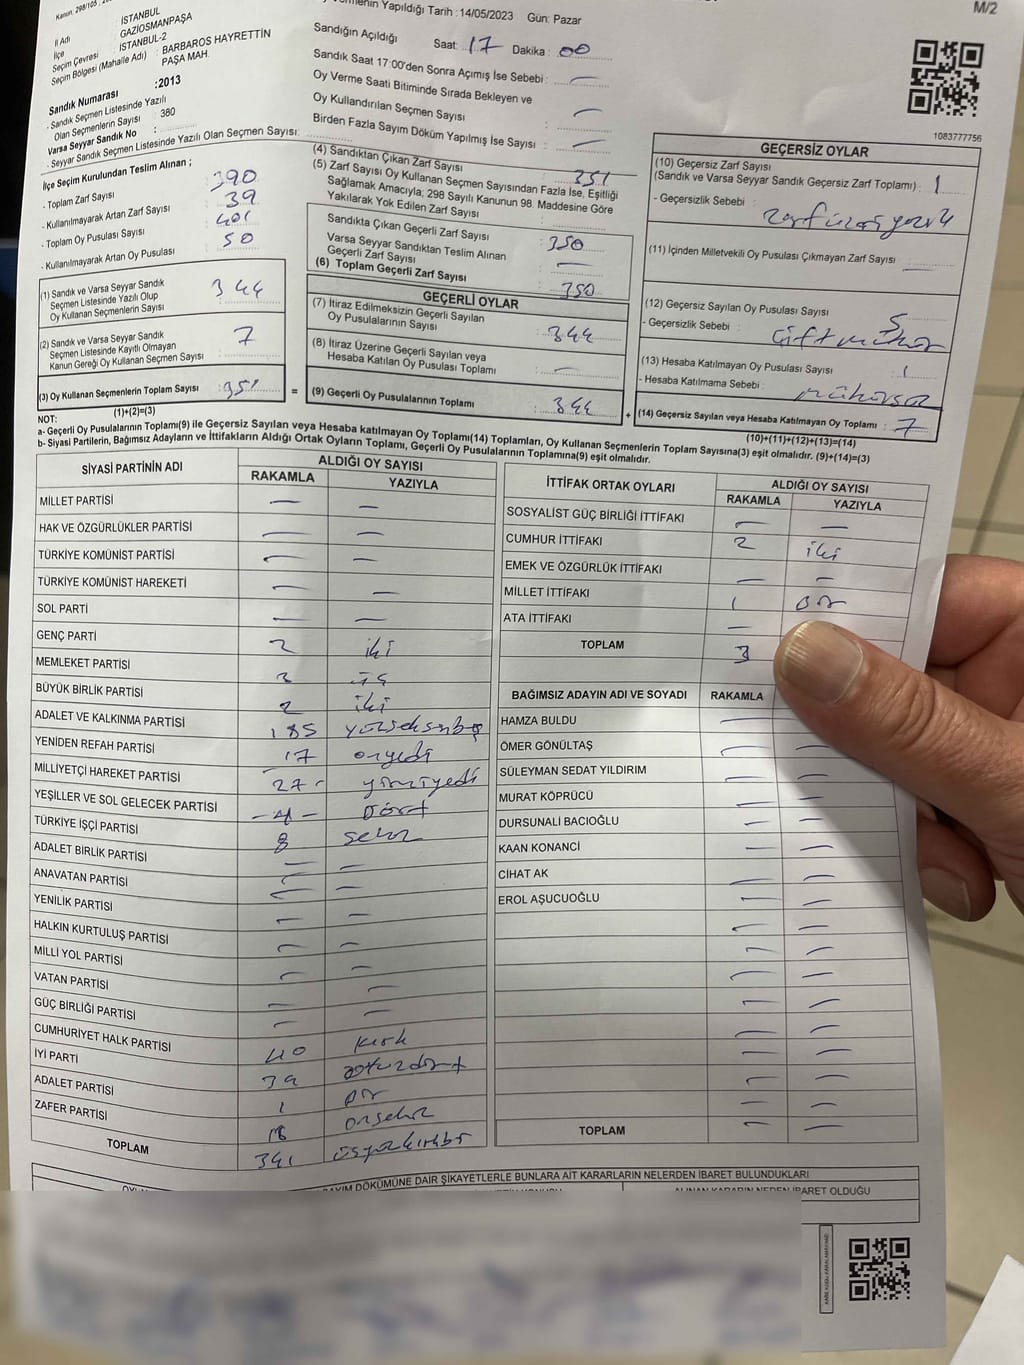 M/2
Yapıldığı Tarih :14/05/2023 Gün: Pazar
İl Adı : İSTANBUL
İlçe : GAZİOSMANPAŞA
Seçim Çevresi : İSTANBUL-2
Seçim Bölgesi (Mahalle Adı) : BARBAROS HAYRETTİN PAŞA MAH.
Sandık Numarası :2013
- Sandık Seçmen Listesinde Yazılı
Olan Seçmenlerin Sayısı : 380
Varsa Seyyar Sandık No :
- Seyyar Sandık Seçmen Listesinde Yazılı Olan Seçmen Sayısı:
Sandığın Açıldığı Saat: 17 Dakika : 00
Sandık Saat 17:00'den Sonra Açımış İse Sebebi : —
Oy Verme Saati Bitiminde Sırada Bekleyen ve
Oy Kullandırılan Seçmen Sayısı : —
Birden Fazla Sayım Döküm Yapılmış İse Sayısı : —
1083777756
İlçe Seçim Kurulundan Teslim Alınan ;
- Toplam Zarf Sayısı : 390
- Kullanılmayarak Artan Zarf Sayısı : 39
- Toplam Oy Pusulası Sayısı : 401
- Kullanılmayarak Artan Oy Pusulası : 50
(1) Sandık ve Varsa Seyyar Sandık
Seçmen Listesinde Yazılı Olup
Oy Kullanan Seçmenlerin Sayısı : 344
(2) Sandık ve Varsa Seyyar Sandık
Seçmen Listesinde Kayıtlı Olmayan
Kanun Gereği Oy Kullanan Seçmen Sayısı : 7
(3) Oy Kullanan Seçmenlerin Toplam Sayısı : 351 =
(1)+(2)=(3)
(4) Sandıktan Çıkan Zarf Sayısı : 351
(5) Zarf Sayısı Oy Kullanan Seçmen Sayısından Fazla İse, Eşitliği
Sağlamak Amacıyla; 298 Sayılı Kanunun 98. Maddesine Göre
Yakılarak Yok Edilen Zarf Sayısı :
Sandıkta Çıkan Geçerli Zarf Sayısı : 350
Varsa Seyyar Sandıktan Teslim Alınan
Geçerli Zarf Sayısı : —
(6) Toplam Geçerli Zarf Sayısı : 350
GEÇERLİ OYLAR
(7) İtiraz Edilmeksizin Geçerli Sayılan
Oy Pusulalarının Sayısı : 344
(8) İtiraz Üzerine Geçerli Sayılan veya
Hesaba Katılan Oy Pusulası Toplamı : —
(9) Geçerli Oy Pusulalarının Toplamı : 344 +
GEÇERSİZ OYLAR
(10) Geçersiz Zarf Sayısı
(Sandık ve Varsa Seyyar Sandık Geçersiz Zarf Toplamı) : 1
- Geçersizlik Sebebi :
(11) İçinden Milletvekili Oy Pusulası Çıkmayan Zarf Sayısı : —
(12) Geçersiz Sayılan Oy Pusulası Sayısı : 5
- Geçersizlik Sebebi : çift mühür
(13) Hesaba Katılmayan Oy Pusulası Sayısı : 1
- Hesaba Katılmama Sebebi : mühürsüz
(14) Geçersiz Sayılan veya Hesaba Katılmayan Oy Toplamı : 7
(10)+(11)+(12)+(13)=(14)
NOT:
a- Geçerli Oy Pusulalarının Toplamı(9) ile Geçersiz Sayılan veya Hesaba katılmayan Oy Toplamı(14) Toplamları, Oy Kullanan Seçmenlerin Toplam Sayısına(3) eşit olmalıdır. (9)+(14)=(3)
b- Siyasi Partilerin, Bağımsız Adayların ve İttifakların Aldığı Ortak Oyların Toplamı, Geçerli Oy Pusulalarının Toplamına(9) eşit olmalıdır.
SİYASİ PARTİNİN ADI ALDIĞI OY SAYISI
RAKAMLA YAZIYLA
MİLLET PARTİSİ — —
HAK VE ÖZGÜRLÜKLER PARTİSİ — —
TÜRKİYE KOMÜNİST PARTİSİ — —
TÜRKİYE KOMÜNİST HAREKETİ — —
SOL PARTİ — —
GENÇ PARTİ 2 iki
MEMLEKET PARTİSİ 3 üç
BÜYÜK BİRLİK PARTİSİ 2 iki
ADALET VE KALKINMA PARTİSİ 185 yüzseksenbeş
YENİDEN REFAH PARTİSİ 17 onyedi
MİLLİYETÇİ HAREKET PARTİSİ 27 yirmiyedi
YEŞİLLER VE SOL GELECEK PARTİSİ -4- Dört
TÜRKİYE İŞÇİ PARTİSİ 8 sekiz
ADALET BİRLİK PARTİSİ — —
ANAVATAN PARTİSİ — —
YENİLİK PARTİSİ — —
HALKIN KURTULUŞ PARTİSİ — —
MİLLİ YOL PARTİSİ — —
VATAN PARTİSİ — —
GÜÇ BİRLİĞİ PARTİSİ — —
CUMHURİYET HALK PARTİSİ 40 kırk
İYİ PARTİ 34 otuzdört
ADALET PARTİSİ 1 bir
ZAFER PARTİSİ 18 onsekiz
TOPLAM 341 üçyüzkırkbir
İTTİFAK ORTAK OYLARI ALDIĞI OY SAYISI
RAKAMLA YAZIYLA
SOSYALİST GÜÇ BİRLİĞİ İTTİFAKI — —
CUMHUR İTTİFAKI 2 iki
EMEK VE ÖZGÜRLÜK İTTİFAKI — —
MİLLET İTTİFAKI 1 bir
ATA İTTİFAKI —
TOPLAM 3
BAĞIMSIZ ADAYIN ADI VE SOYADI RAKAMLA
HAMZA BULDU —
ÖMER GÖNÜLTAŞ — —
SÜLEYMAN SEDAT YILDIRIM — —
MURAT KÖPRÜCÜ — —
DURSUNALİ BACIOĞLU — —
KAAN KONANCİ — —
CİHAT AK — —
EROL AŞUCUOĞLU — —
TOPLAM — —
DÖKÜMÜNE DAİR ŞİKAYETLERLE BUNLARA AİT KARARLARIN NELERDEN İBARET BULUNDUKLARI
ALINAN KARARIN NEDEN İBARET OLDUĞU